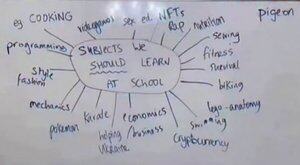 eg COOKING
videogames
sex ed.
NFTs
R&P
nutrition
pigeon
sewing
programming
SUBJECTS WE
SHOULD LEARN
AT SCHOOL
fitness
survival
style
fashion
biking
mechanics
lego-anatomy
pokemon
karate
economics
swimming
helping
Ukraine
business
cryptocurrency